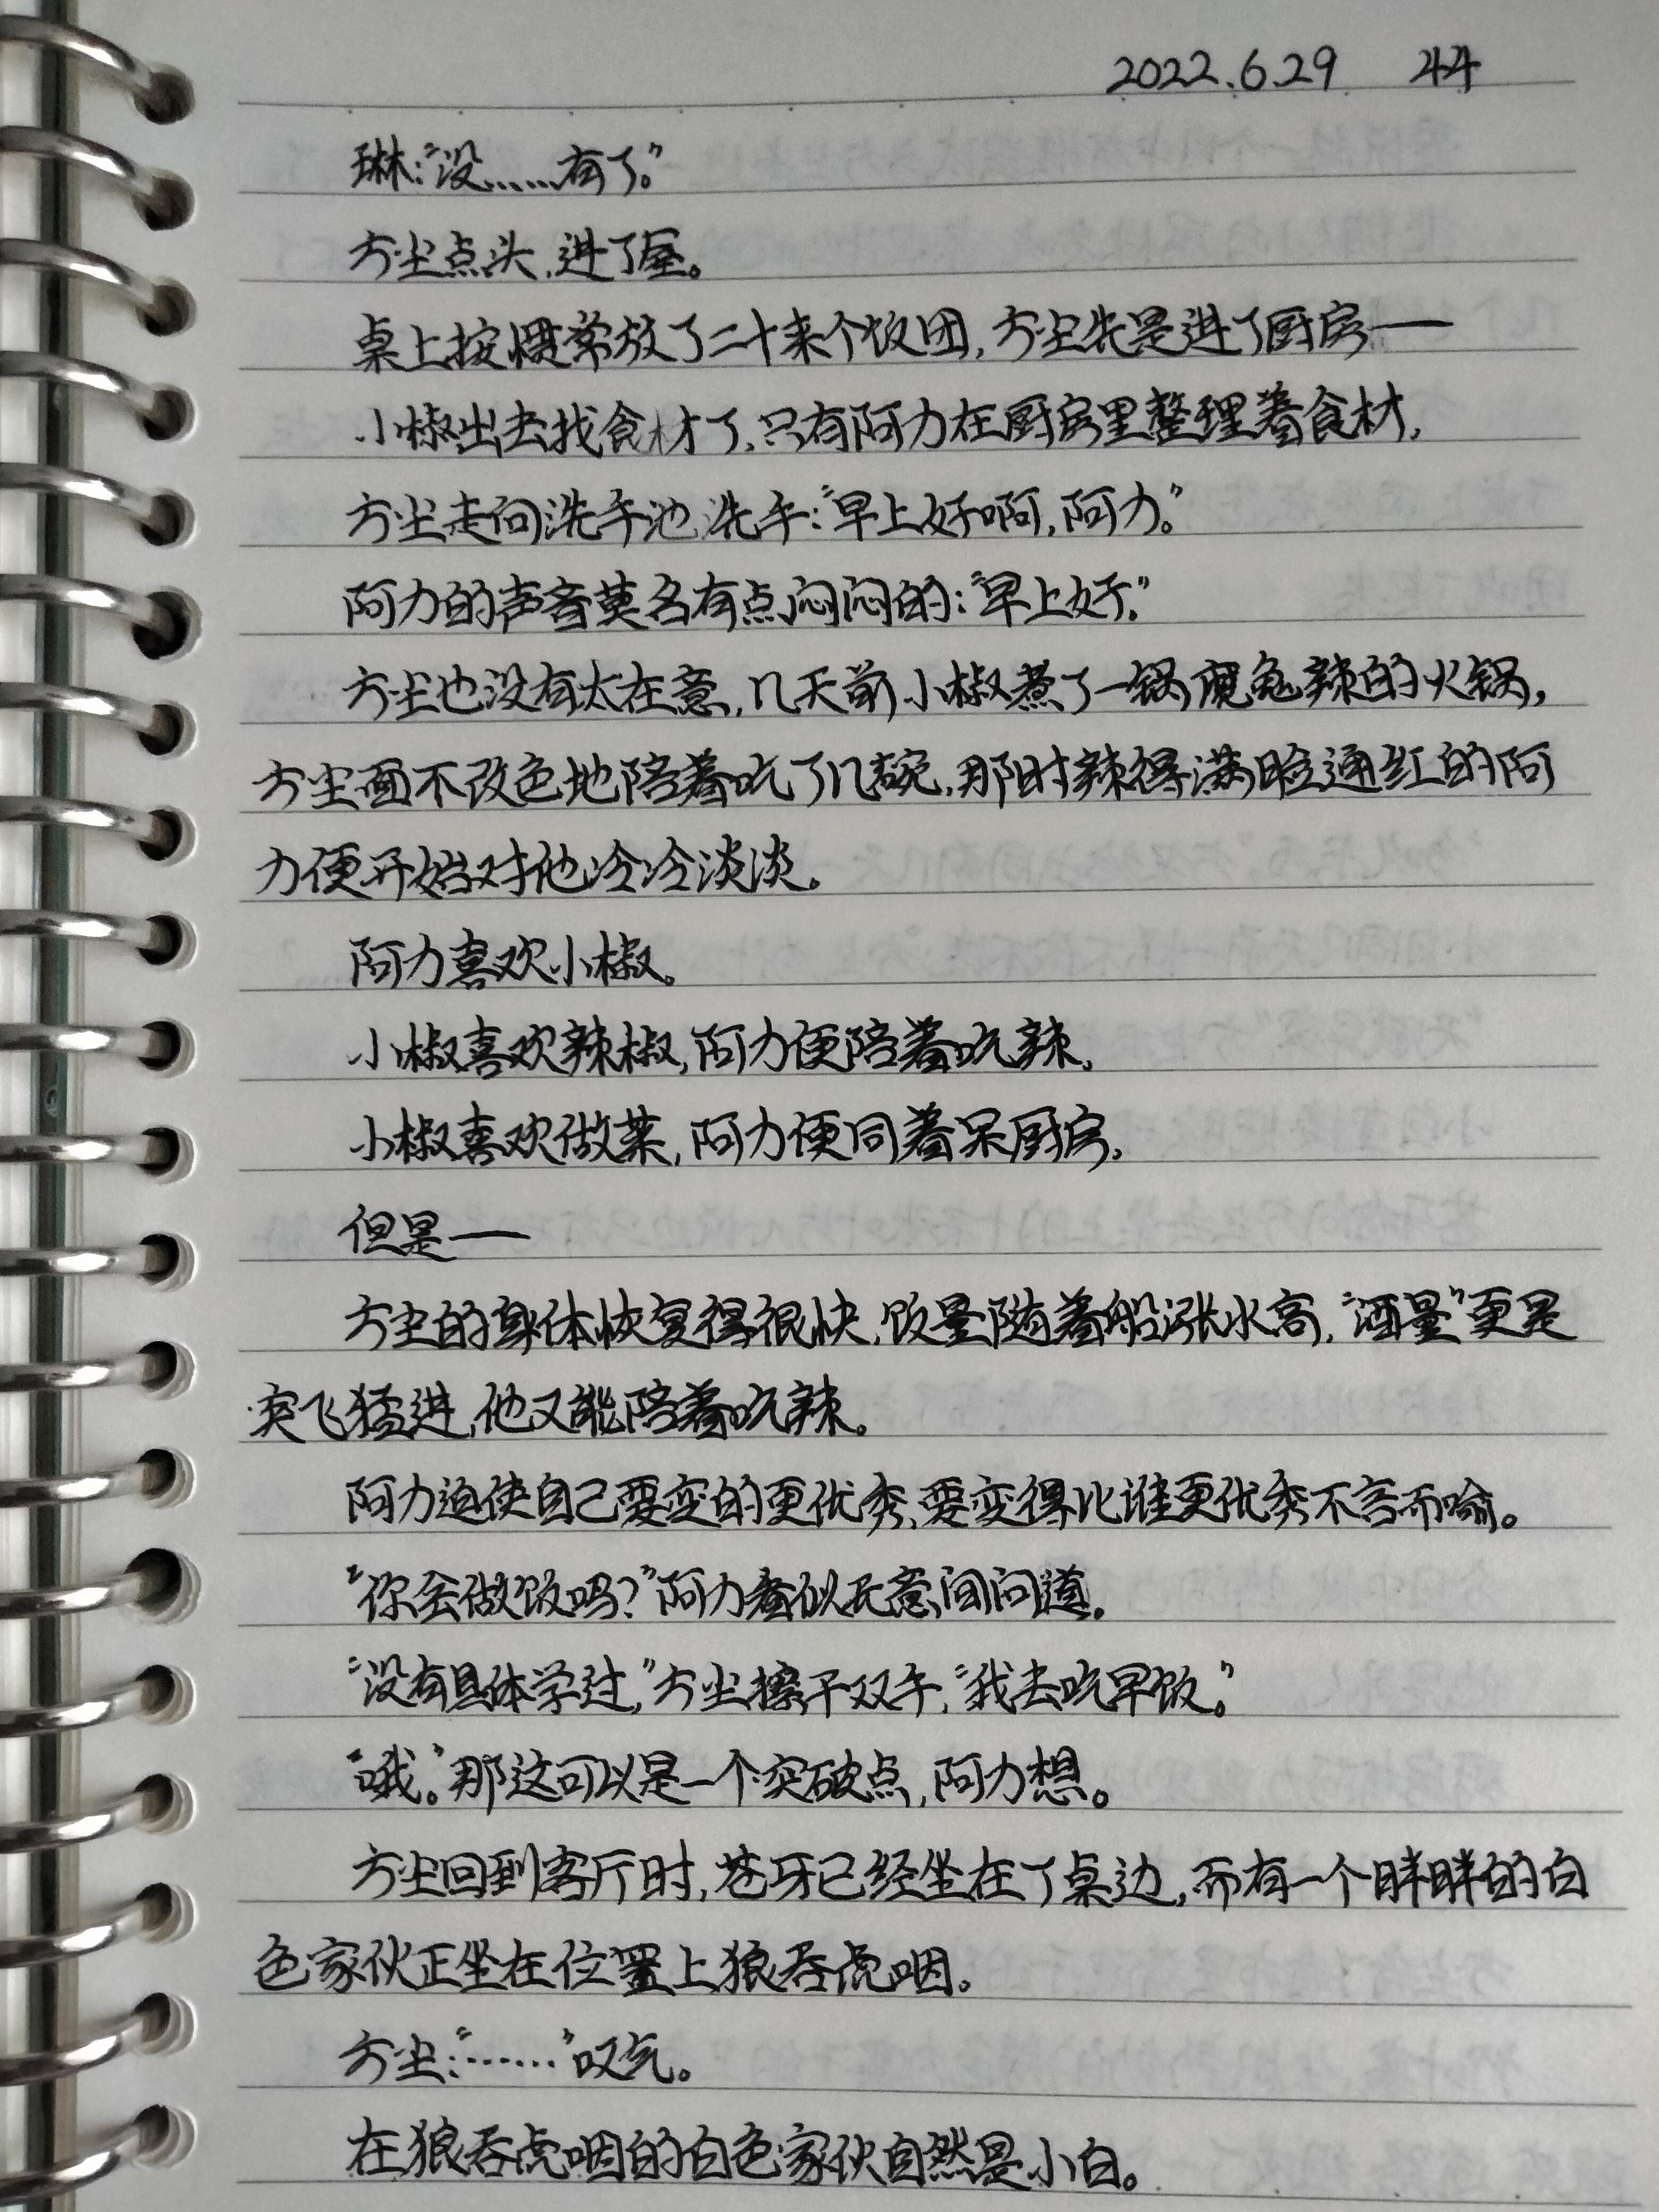 2022.6.29 44
琳:“没……有了。”
方尘点头,进了屋。
桌上按惯常放了二十来个饭团,方尘先是进了厨房——
小椒出去找食材了,只有阿力在厨房里整理着食材,
方尘走向洗手池,洗手:“早上好啊,阿力。”
阿力的声音莫名有点闷闷的:“早上好。”
方尘也没有太在意,几天前小椒煮了一锅魔鬼辣的火锅,
方尘面不改色地陪着吃了几碗,那时辣得满脸通红的阿
力便开始对他冷冷淡淡。
阿力喜欢小椒。
小椒喜欢辣椒,阿力便陪着吃辣。
小椒喜欢做菜,阿力便同着呆厨房。
但是——
方尘的身体恢复得很快,饭量随着船涨水高,“酒量”更是
突飞猛进,他又能陪着吃辣。
阿力迫使自己要变的更优秀,要变得比谁更优秀不言而喻。
“你会做饭吗?”阿力看似无意间问道。
“没有具体学过,”方尘擦干双手,“我去吃早饭。”
“哦。”那这可以是一个突破点,阿力想。
方尘回到客厅时,苍牙已经坐在了桌边,而有一个胖胖的白
色家伙正坐在位置上狼吞虎咽。
方尘:“……”叹气。
在狼吞虎咽的白色家伙自然是小白。